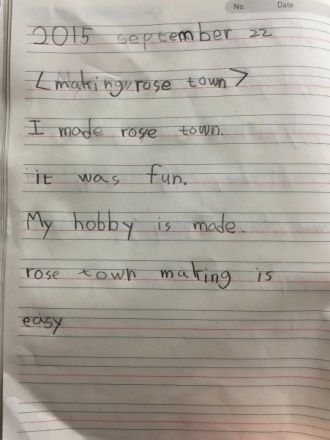 No. Date
2015 september 22
<making rose town>
I made rose town.
it was fun.
My hobby is made.
rose town making is
easy